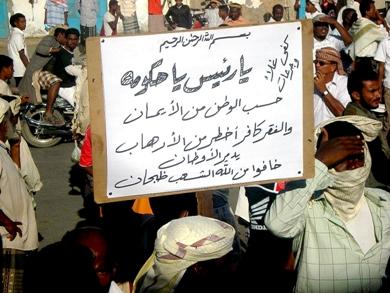 بسم الله الرحمن الرحيم
يا رئيس يا حكومه
حسب الوطن من الأيمان
والفقر كافر أخطر من الأرهاب
يدير الأوطان
خافوا من الله الشعب طبحان
كفى غلاء